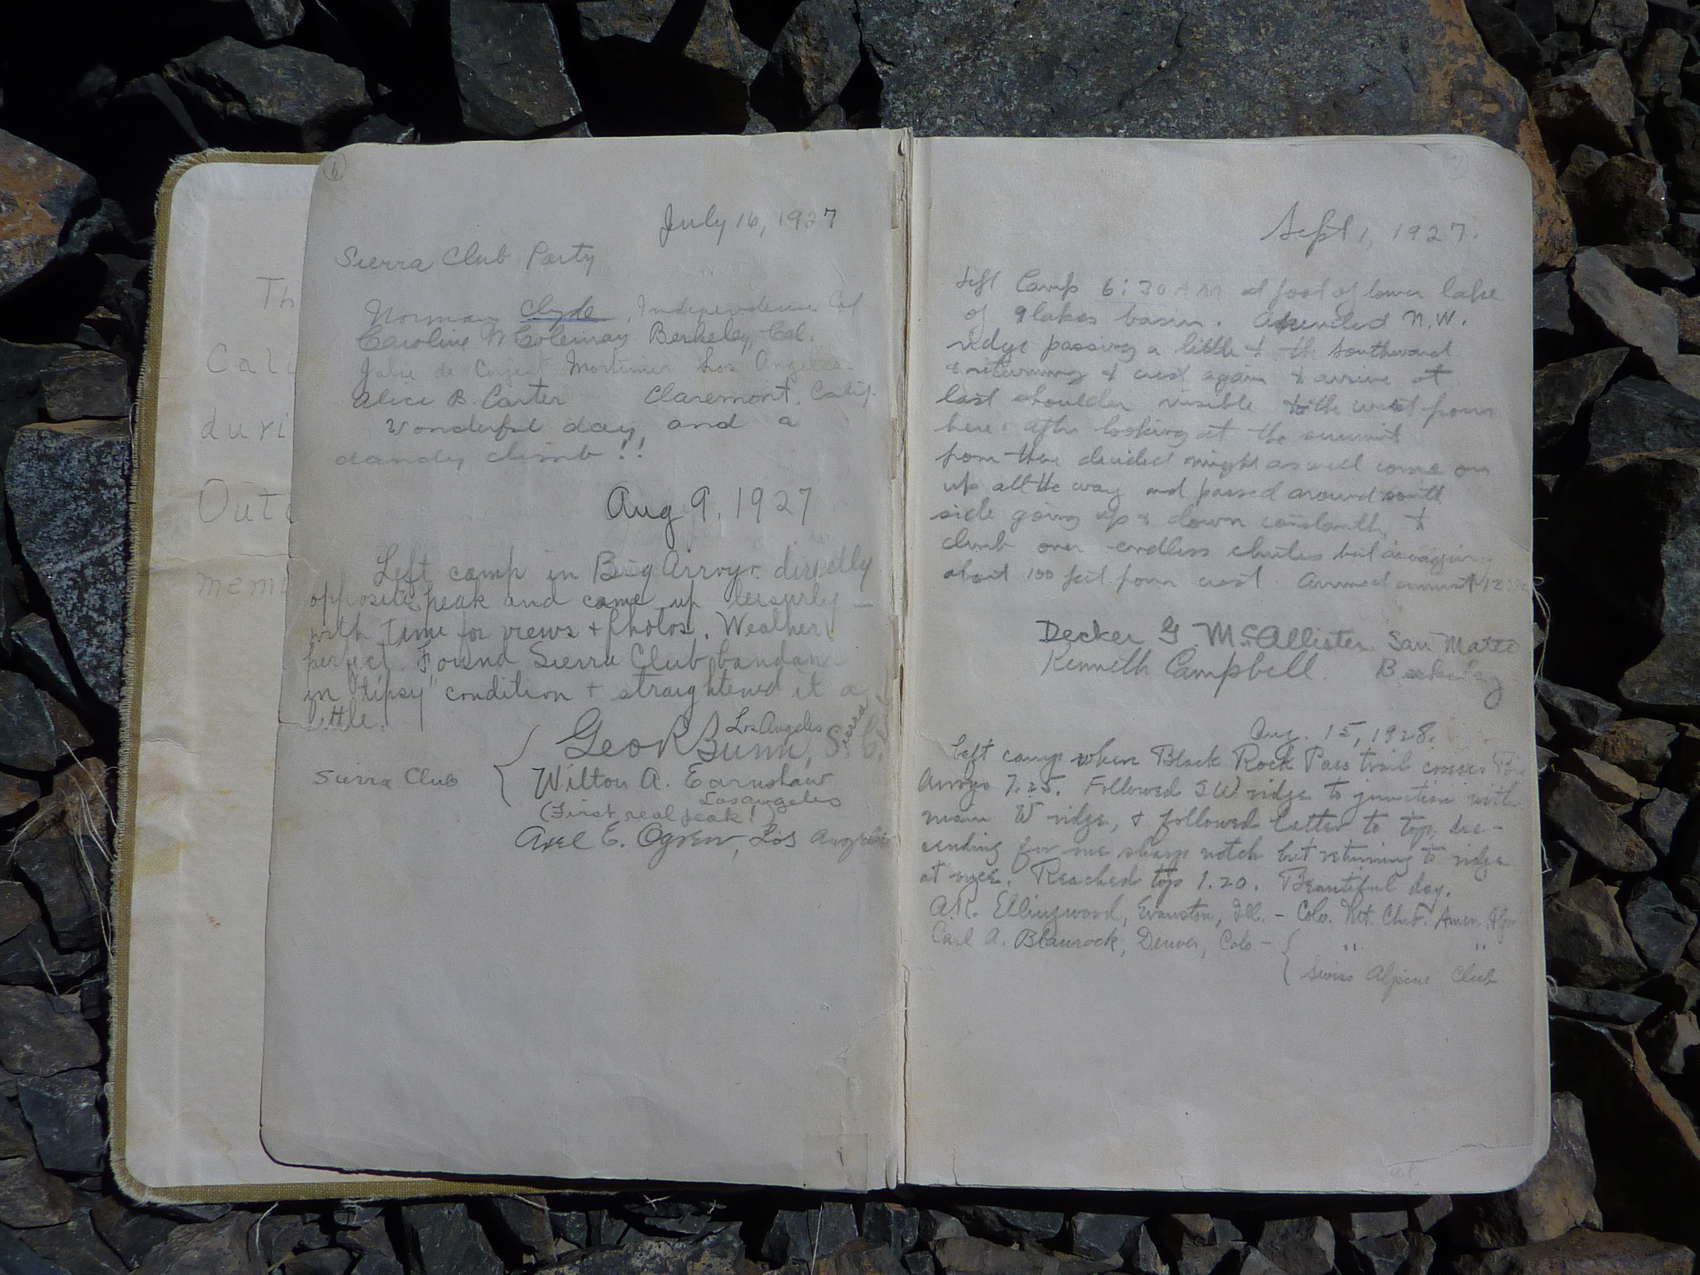 Th
Cali
duri
Oute
mem
6
July 16, 1927
Sierra Club Party
Norman Clyde, Independence Cal
Caroline N Coleman Berkeley, Cal.
Julie de Mortimer Los Angeles.
Alice B. Carter Claremont, Calif.
Wonderful day, and a
dandy climb!!
Aug 9, 1927
Left camp in Big Arroyo directly
opposite peak and came up leisurely -
with time for views + photos. Weather
perfect. Found Sierra Club bandana
in "tipsy" condition + straightened it a
little.
Los Angeles
Geo R Bunn, S. C.
Sierra Club { Wilton A. Earnshaw
Los Angeles
(First real peak!)
Axel E. Ogren, Los Angeles
7
Sept 1, 1927.
Left Camp 6:30 AM at foot of lower lake
of 9 lakes basin. Ascended N.W.
ridge passing a little to the southward
& returning to crest again to arrive at
last shoulder visible to the west from
here. After looking at the summit
from there decided might as well come on
up all the way and passed around south
side going up & down constantly, to
climb over endless chutes but
about 100 feet from crest. Arrived summit 12
Decker G McAllister San Mateo
Kenneth Campbell. Berkeley
Aug. 15, 1928.
Left camp where Black Rock Pass trail crosses Big
Arroyo 7.25. Followed SW ridge to junction with
main W ridge, & followed latter to top, des-
cending for one sharp notch but returning to ridge
at once. Reached top 1.20. Beautiful day.
A.R. Ellingwood, Evanston, Ill. - Colo. Mt. Club. Amer. Alpine
Carl A. Blaurock, Denver, Colo - { " "
Swiss Alpine Club